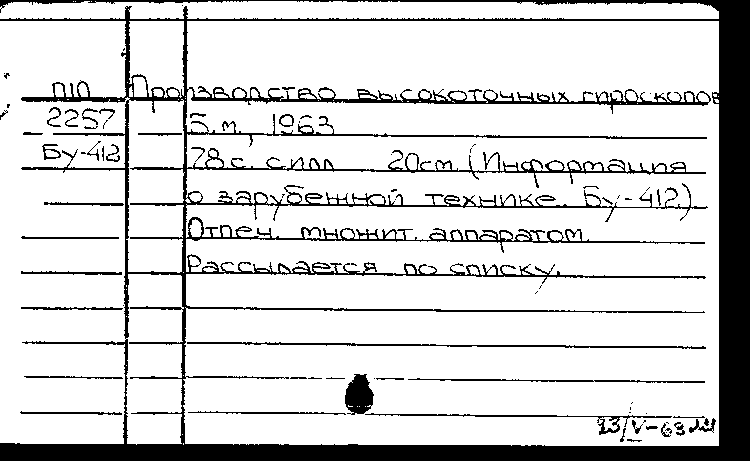 П1П Производство высокоточных гироскопов
2257 Б.м., 1963
Бу-412 78 с. с илл 20см. (Информация
о зарубежной технике. Бу-412)
Отпеч. множит. аппаратом.
Рассылается по списку.
23/V-63